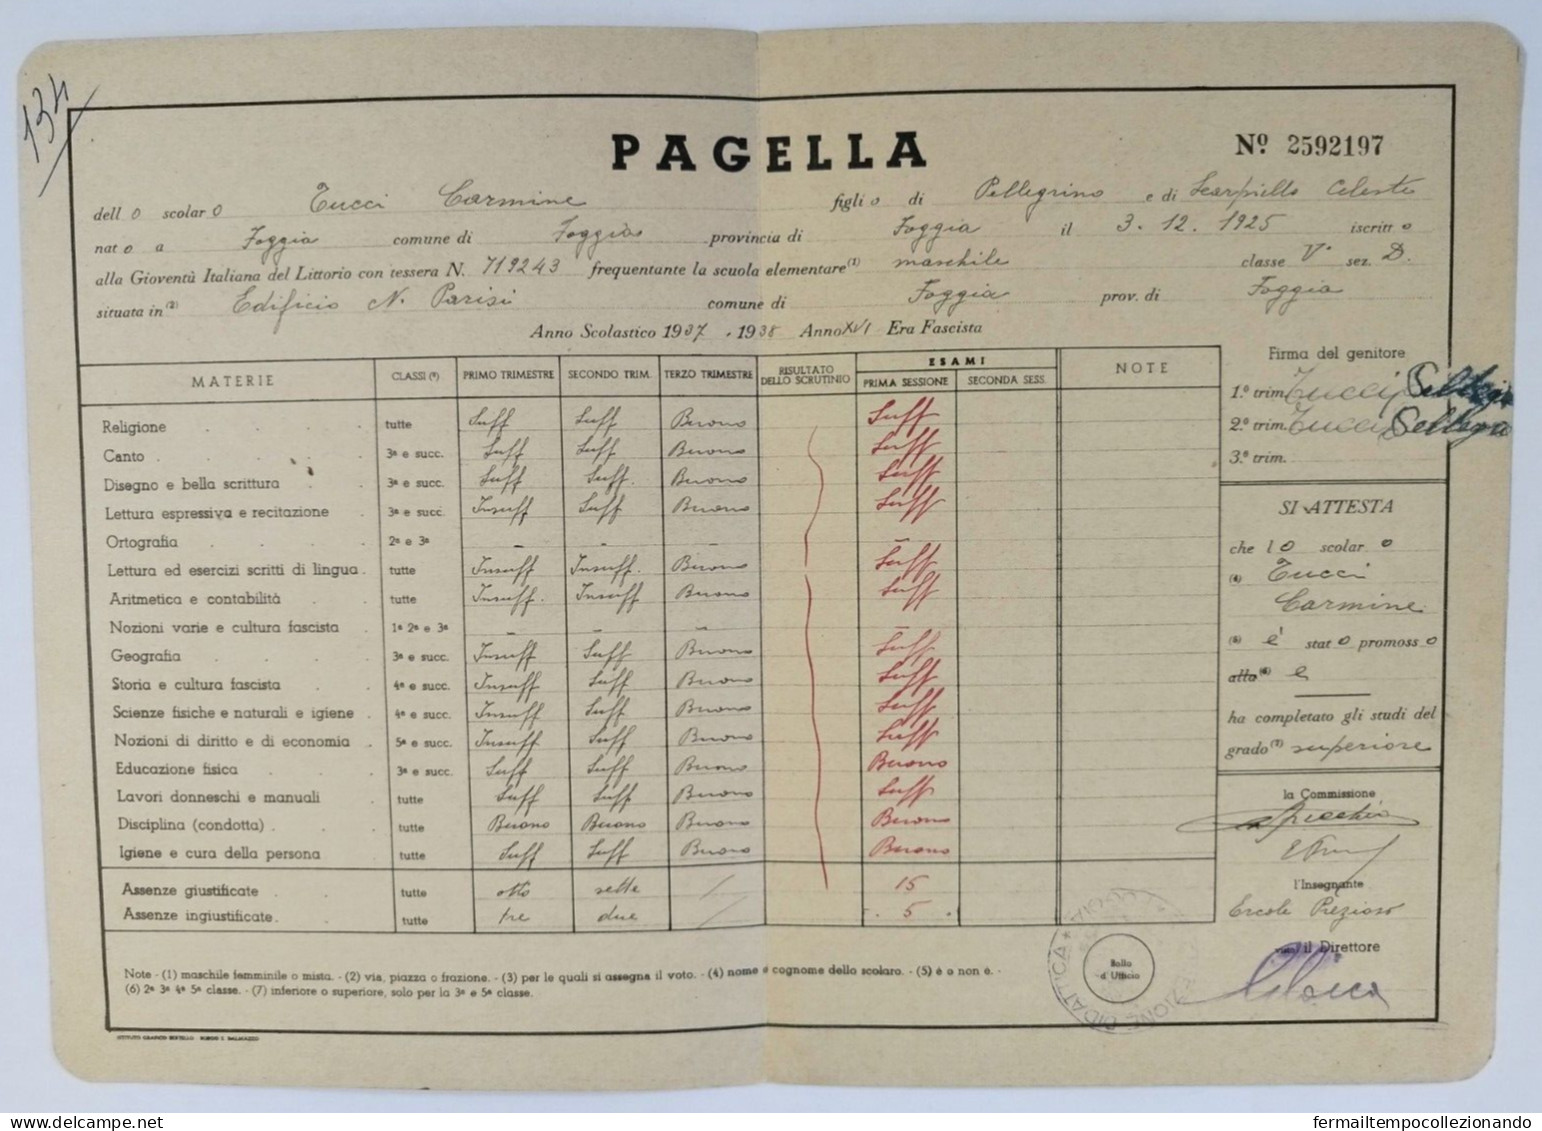 134
PAGELLA
Nº 2592197
dell o scolar o Tucci Carmine figli o di Pellegrino e di Scarpiello Celeste
nat o a Foggia comune di Foggia provincia di Foggia il 3.12.1925 iscritt o
alla Gioventù Italiana del Littorio con tessera N. 719243 frequentante la scuola elementare (1) maschile classe Vª sez. D.
situata in (2) Edificio N. Parisi comune di Foggia prov. di Foggia
Anno Scolastico 1937 - 1938 Anno XVI Era Fascista
MATERIE CLASSI (3) PRIMO TRIMESTRE SECONDO TRIM. TERZO TRIMESTRE RISULTATO DELLO SCRUTINIO ESAMI PRIMA SESSIONE SECONDA SESS. NOTE
Religione tutte Suff Suff Buono Suff
Canto 3ª e succ. Suff Suff Buono Suff
Disegno e bella scrittura 3ª e succ. Suff Suff. Buono Suff
Lettura espressiva e recitazione 3ª e succ. Insuff Suff Buono Suff
Ortografia 2ª e 3ª - - - -
Lettura ed esercizi scritti di lingua tutte Insuff Insuff. Buono Suff
Aritmetica e contabilità tutte Insuff. Insuff Buono Suff
Nozioni varie e cultura fascista 1ª 2ª e 3ª - - - -
Geografia 3ª e succ. Insuff Suff Buono Suff
Storia e cultura fascista 4ª e succ. Insuff Suff Buono Suff
Scienze fisiche e naturali e igiene 4ª e succ. Insuff Suff Buono Suff
Nozioni di diritto e di economia 5ª e succ. Insuff Suff Buono Suff
Educazione fisica 3ª e succ. Suff Suff Buono Buono
Lavori donneschi e manuali tutte Suff Suff Buono Suff
Disciplina (condotta) tutte Buono Buono Buono Buono
Igiene e cura della persona tutte Suff Suff Buono Buono
Assenze giustificate tutte otto sette / 15
Assenze ingiustificate tutte tre due / 5
Note - (1) maschile femminile o mista. - (2) via, piazza o frazione. - (3) per le quali si assegna il voto. - (4) nome e cognome dello scolaro. - (5) è o non è. -
(6) 2ª 3ª 4ª 5ª classe. - (7) inferiore o superiore, solo per la 3ª e 5ª classe.
Firma del genitore
1.º trim. Tucci Pellegrino
2.º trim. Tucci Pellegrino
3.º trim.
SI ATTESTA
che l o scolar o
(4) Tucci
Carmine
(5) è stat o promoss o
alla (6) e
ha completato gli studi del
grado (7) superiore
la Commissione
l'Insegnante
Ercole Prezioso
il Direttore
Bollo
d'Ufficio
DIREZIONE DIDATTICA * FOGGIA
fermailtempocollezionando